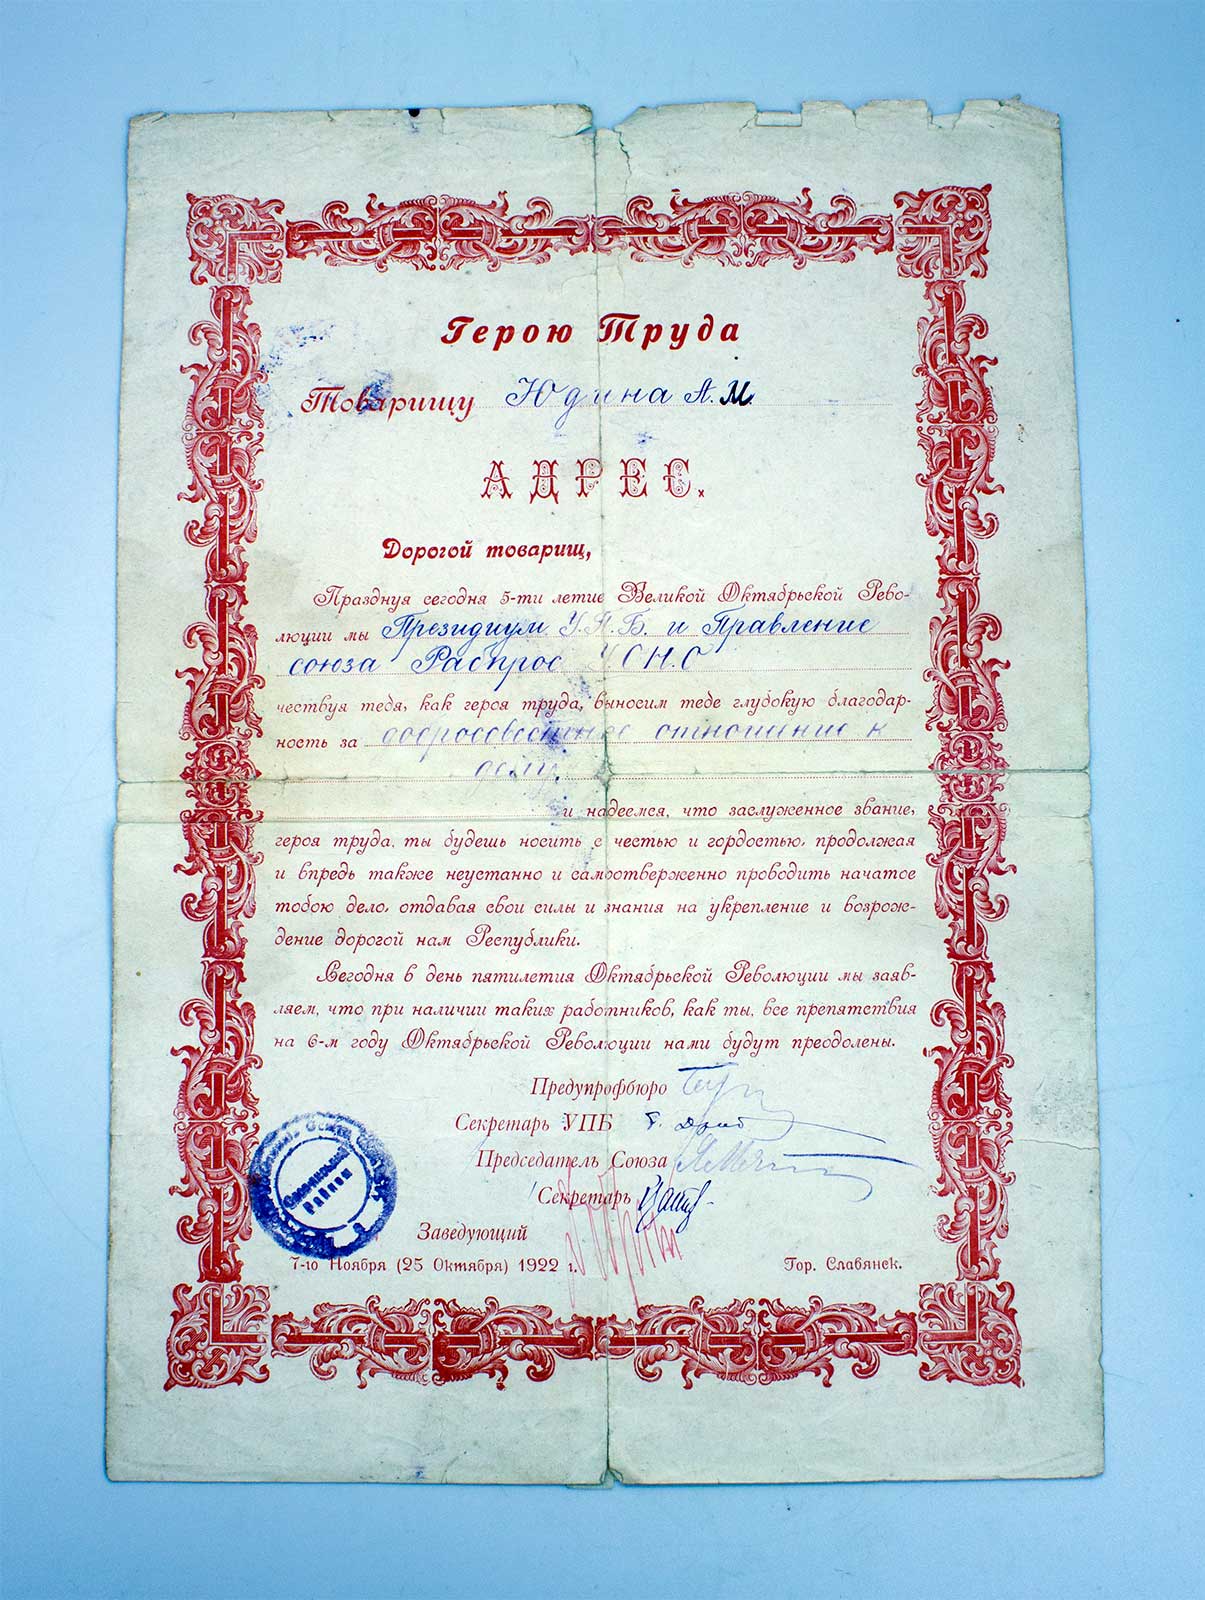 Герою Труда
Товарищу Юдина А.М.
АДРЕС.
Дорогой товарищ,
Празднуя сегодня 5-ти летие Великой Октябрьской Рево-
люции мы Президиум У.П.Б. и Правление
союза Рабпрос УСН.О
чествуя тебя, как героя труда, выносим тебе глубокую благодар-
ность за добросовестное отношение к
делу.
и надеемся, что заслуженное звание,
героя труда, ты будешь носить с честью и гордостью, продолжая
и впредь также неустанно и самоотверженно проводить начатое
тобою дело, отдавая свои силы и знания на укрепление и возрож-
дение дорогой нам Республики.
Сегодня в день пятилетия Октябрьской Революции мы заяв-
ляем, что при наличии таких работников, как ты, все препятствия
на 6-м году Октябрьской Революции нами будут преодолены.
Предупрофбюро
Секретарь УПБ
Председатель Союза
Секретарь
Заведующий
7-го Ноября (25 Октября) 1922 г.
Гор. Славянск.